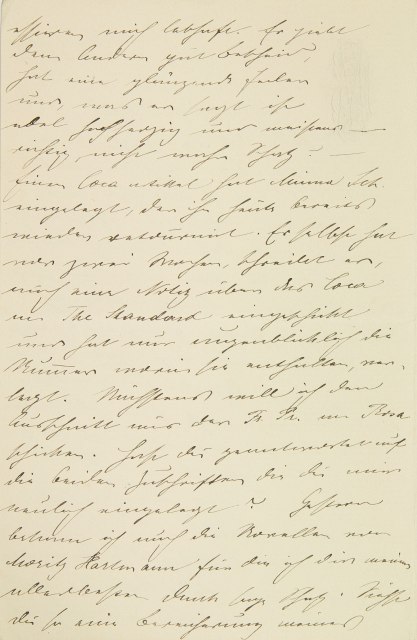 essieren mich lebhaft. Er giebt
dem Andern gut Bescheid,
hat eine glänzende Feder
und, was er sagt ist
edel hochherzig und meistens —
richtig, nicht wahr Schatz? —
Einen Coca artikel hat Minna Dir
eingelegt, den ich heute bereits
wieder retournirt. Er selbst hat
vor zwei Wochen, schreibt er,
auch eine Notiz über das Coca
in The Standard eingeschickt
und hat nur augenblicklich die
Numer worin sie enthalten, ver-
legt. Nächstens will ich den
Ausschnitt aus der Fr. Pr. an Rosa
schicken. Hast du geantwortet auf
die beiden Zuschriften die du mir
neulich eingelegt? Gestern
bekam ich auch die Novellen von
Moritz Hartmann für die ich dir meinen
allerbesten Dank sage Schatz. Siehst
du so eine Bereicherung meines